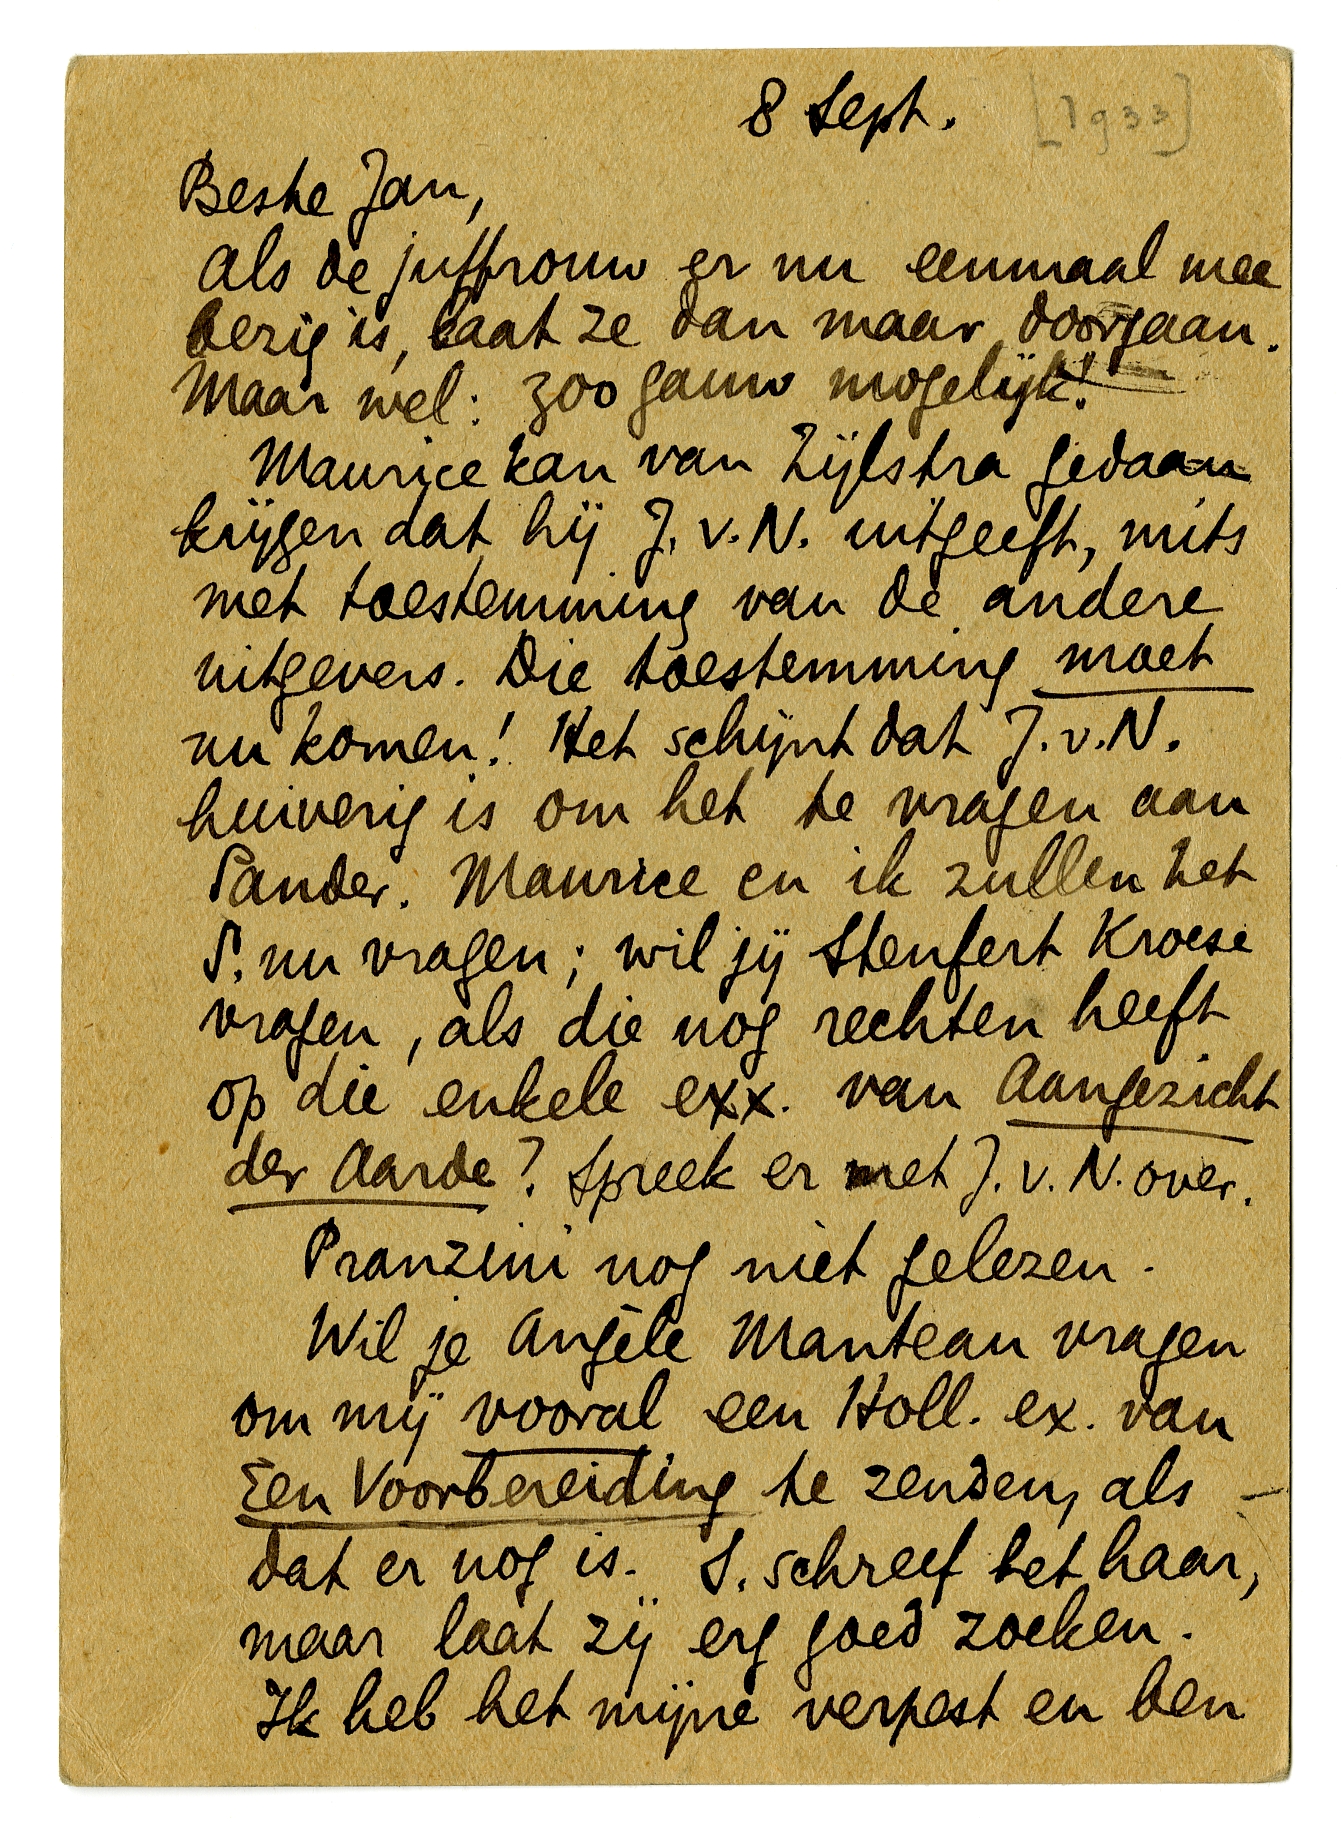 8 Sept. [1933]
Beste Jan,
Als de juffrouw er nu eenmaal mee
bezig is, laat ze dan maar doorgaan.
Maar wel: zoo gauw mogelijk!
Maurice kan van Zijlstra gedaan
krijgen dat hij J. v. N. uitgeeft, mits
met toestemming van de andere
uitgevers. Die toestemming moet
nu komen! Het schijnt dat J. v. N.
huiverig is om het te vragen aan
Sander. Maurice en ik zullen het
S. nu vragen; wil jij Stenfert Kroese
vragen, als die nog rechten heeft
op die enkele exx. van Aangezicht
der Aarde? Spreek er met J. v. N. over.
Pranzini nog niet gelezen.
Wil je Angèle Manteau vragen
om mij vooral een Holl. ex. van
Een Voorbereiding te zenden, als
dat er nog is. S. schreef het haar,
maar laat zij erg goed zoeken.
Ik heb het mijne verpest en ben